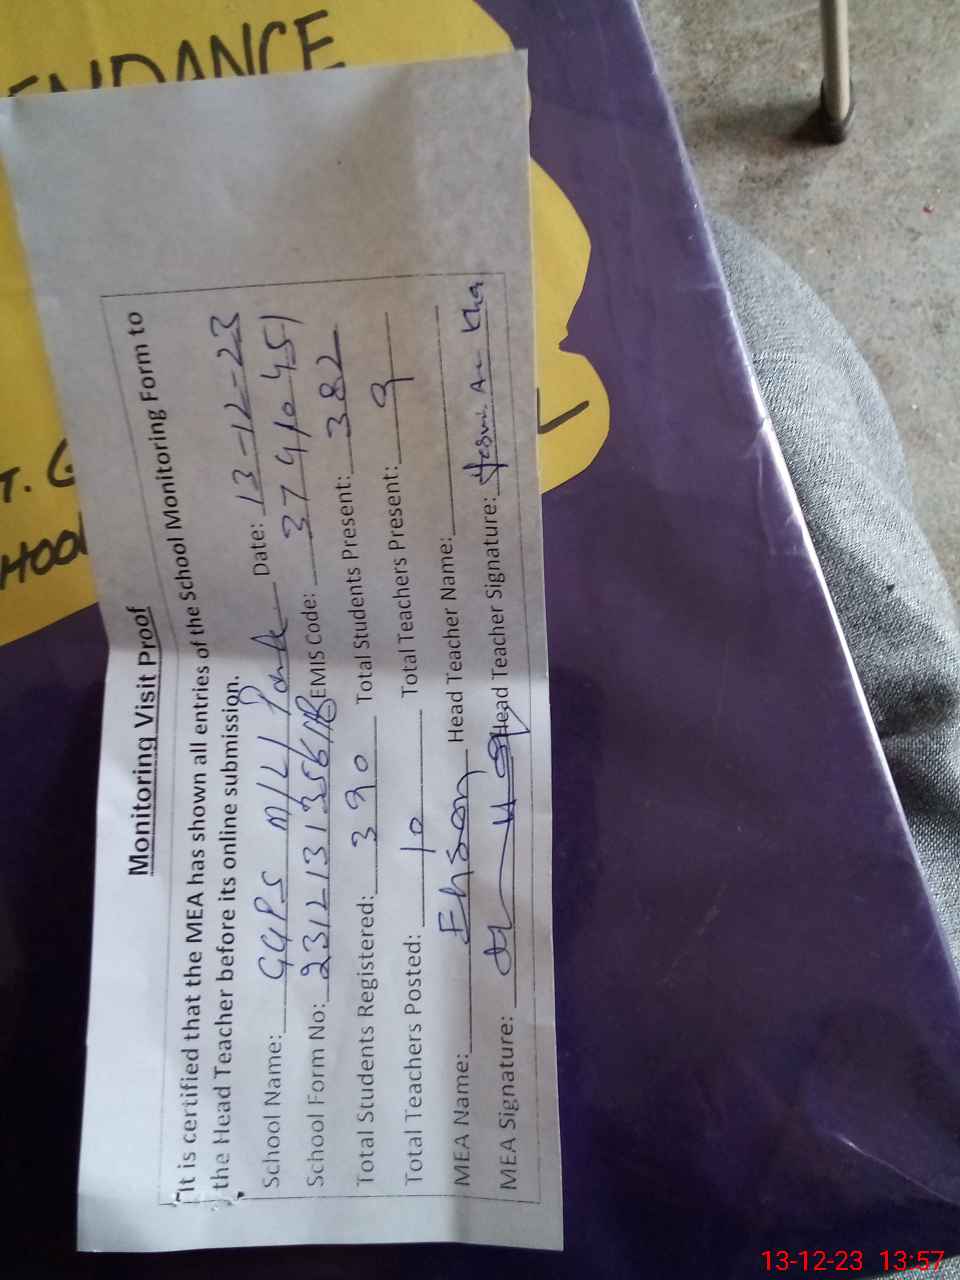 ENDANCE
T. G
HOOL
Monitoring Visit Proof
It is certified that the MEA has shown all entries of the School Monitoring Form to
the Head Teacher before its online submission.
School Name: GGPS Mill Date: 13-12-23
School Form No: EMIS Code: 37410451
Total Students Registered: 390 Total Students Present: 382
Total Teachers Posted: 10 Total Teachers Present: 9
MEA Name: Ehsan Head Teacher Name:
MEA Signature: Head Teacher Signature:
13-12-23 13:57